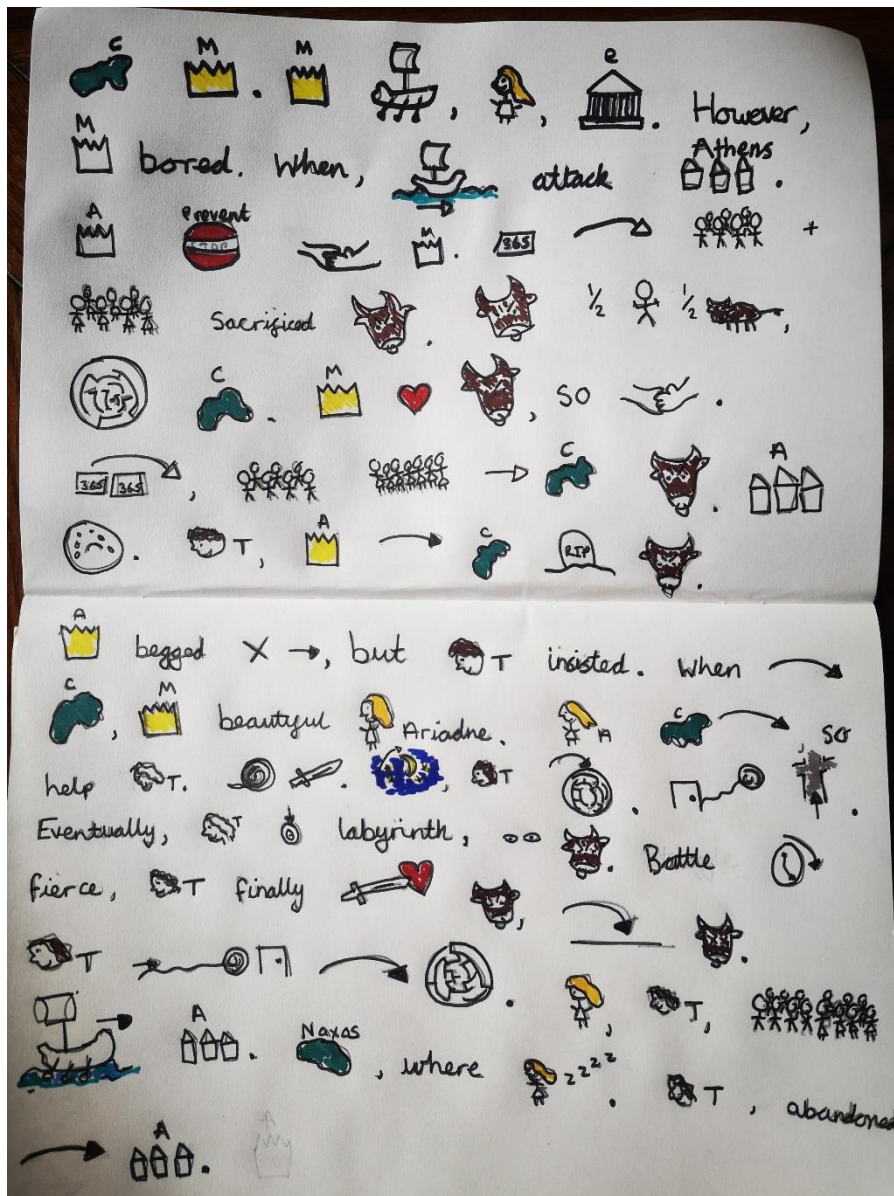 C M . M , , e . However,
M bored. When, attack Athens .
A Prevent STOP M . 365 +
Sacrificed . 1/2 1/2 ,
C . M , so .
365 365 , → C . A
. T, A → C RIP .
A begged X →, but T insisted. When
C , M beautiful Ariadne. A C so
help T. . , T . .
Eventually, T labyrinth, . Battle
fierce, T finally , .
T . , T,
A . Naxos , where zzzz . T , abandoned
A .